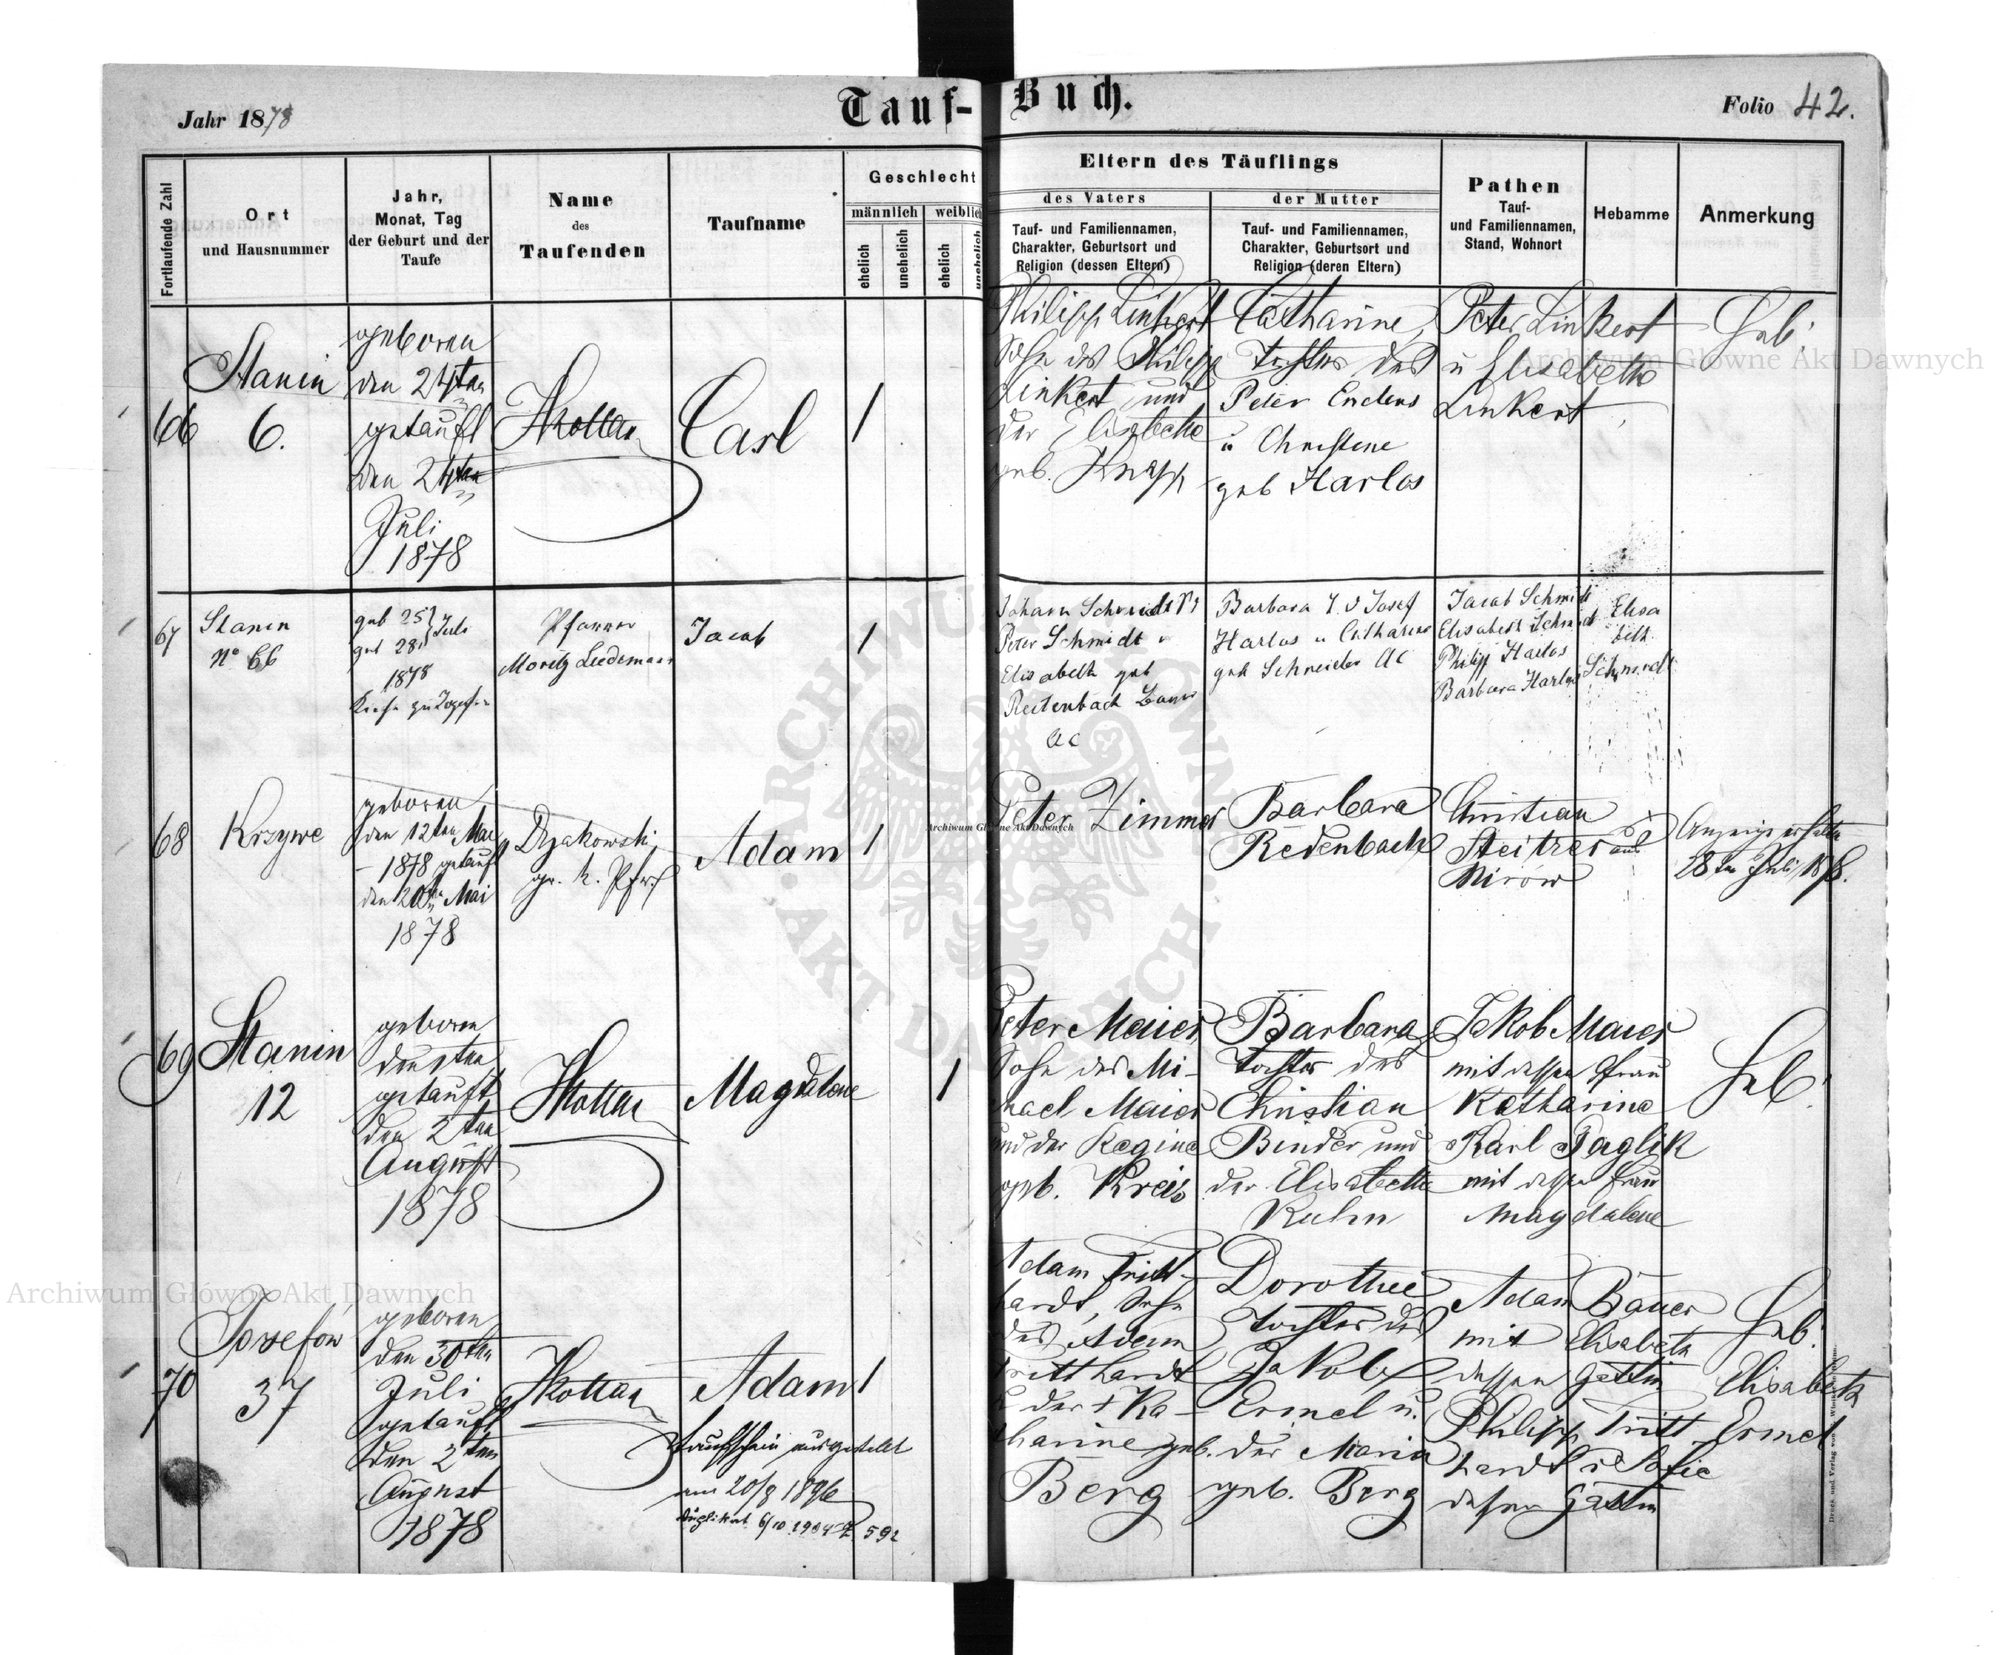 Jahr 1878
Tauf-Buch.
Folio 42.
Fortlaufende Zahl
Ort
und Hausnummer
Jahr,
Monat, Tag
der Geburt und der
Taufe
Name
des
Taufenden
Taufname
Geschlecht
männlich
weiblich
ehelich
unehelich
ehelich
unehelich
Eltern des Täuflings
des Vaters
Tauf- und Familiennamen,
Charakter, Geburtsort und
Religion (dessen Eltern)
der Mutter
Tauf- und Familiennamen,
Charakter, Geburtsort und
Religion (deren Eltern)
Pathen
Tauf-
und Familiennamen,
Stand, Wohnort
Hebamme
Anmerkung
66
Stanin
6.
geboren
den 24ten
getauft
den 24ten
Juli
1878
Carl
1
Philipp Linkert
Sohn des Philipp
Linkert und
der Elisabethe
geb. Knapp
Catharine,
Tochter des
Peter Enders
u Christine
geb Harlos
Peter Linkert
u Elisabethe
Linkert
67
Stanin
No 66
geb 25
get 28 Juli
1878
Pfarrer
Jacob
1
Johann Schmidt
Peter Schmidt u
Elisabeth geb
Reitenbach
AC
Barbara T. d Josef
Harlos u Catharine
geb Schneider AC
Jacob Schmidt
Elisabeth Schmidt
Philipp Harlos
Barbara Harlos
Elisa
beth
Schmidt
68
Krzywe
geboren
den 12ten Mai
1878 getauft
den 20ten Mai
1878
Dzakowski
Adam
1
Peter Zimmer
Barbara
Redenbach
Christian
Steitzer aus
Mirow
28 ten Juli 1878.
69
Stanin
12
geboren
den 1ten
getauft
den 2ten
August
1878
Magdalene
1
Peter Maier
Sohn des Mi-
chael Maier
und der Regine
geb. Kreis
Barbara
Tochter des
Christian
Binder und
der Elisabethe
Kuhn
Jakob Maier
mit dessen Frau
Katharine
Karl
mit dessen Frau
Magdalene
70
Josefow
37
geboren
den 30ten
Juli
getauft
den 2ten
August
1878
Adam
1
Taufschein ausgestellt
am 20/8 1896
Duplikat 6/10 1904 Z. 592
Adam Tritt-
hardt, Sohn
des Adam
Tritthardt
u der + Ka-
tharine geb.
Berg
Dorothee
Tochter des
Jakob
Ermel u.
der Maria
geb. Berg
Adam Bauer
mit Elisabeth
dessen Gattin
Philipp Tritt
hardt u Sofie
dessen Gattin
Elisabeth
Ermel
Archiwum Główne Akt Dawnych
Archiwum Główne Akt Dawnych
Archiwum Główne Akt Dawnych
ARCHIWUM GŁÓWNE
AKT DAWNYCH